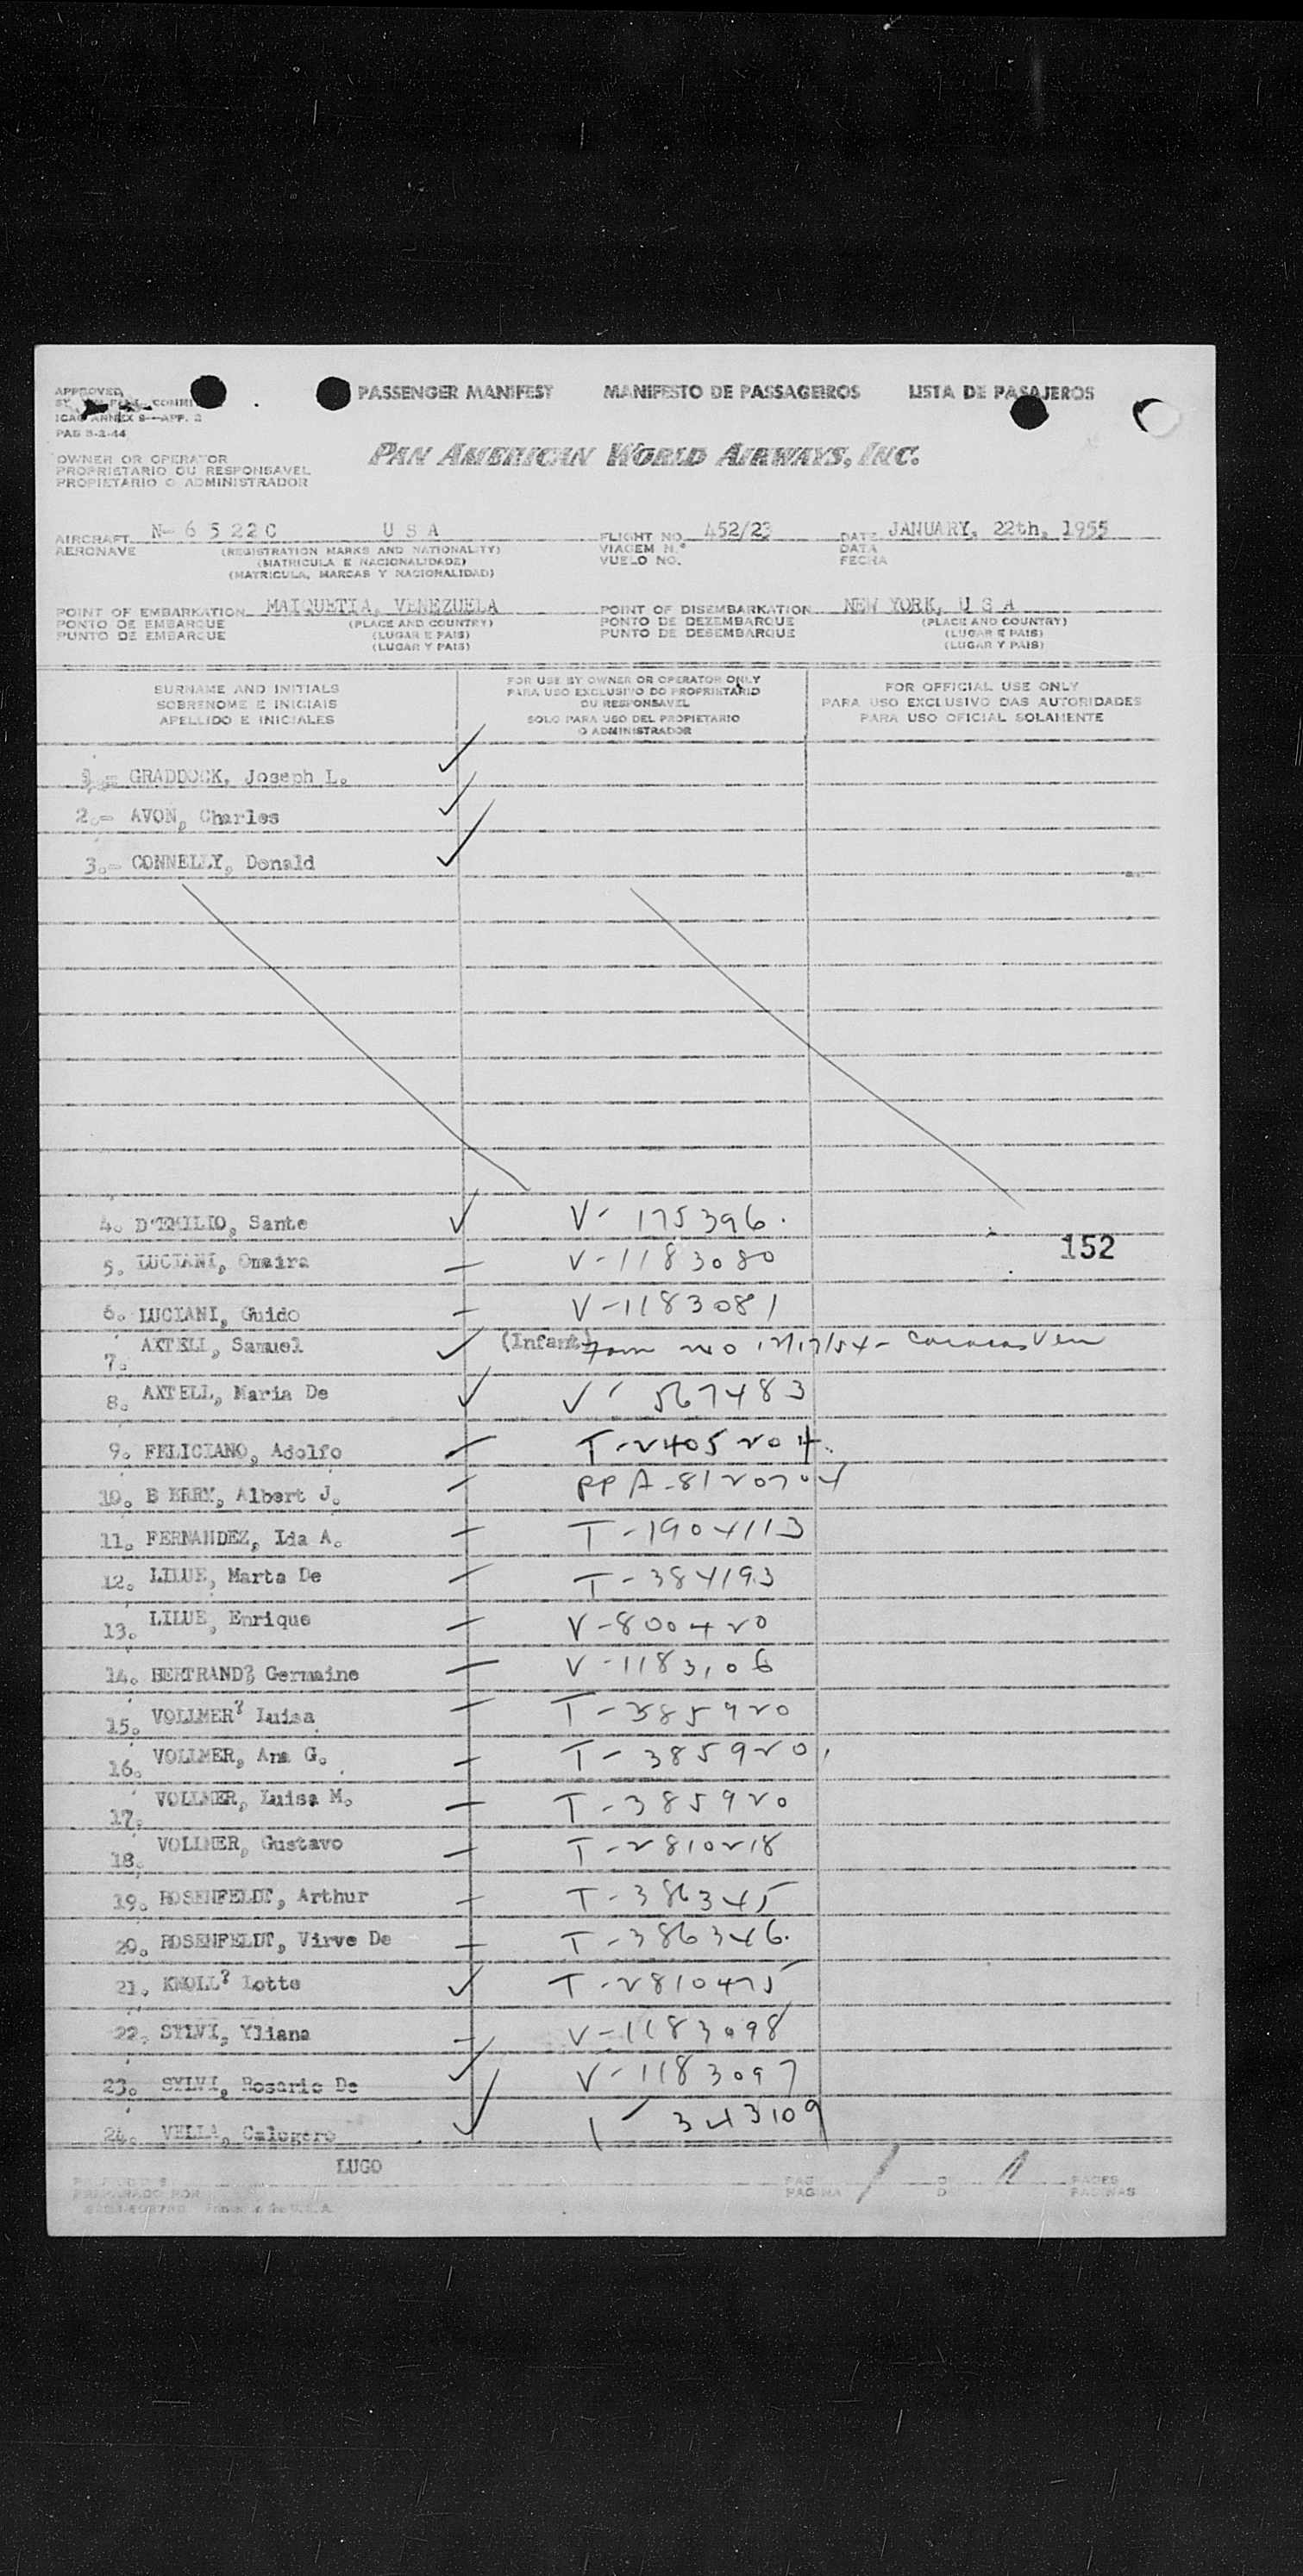 APPROVED
ICAO ANNEX 9—APP. 3
PAS 5-2-44
PASSENGER MANIFEST MANIFESTO DE PASSAGEIROS LISTA DE PASAJEROS
OWNER OR OPERATOR
PROPRIETARIO OU RESPONSAVEL
PROPIETARIO O ADMINISTRADOR
PAN AMERICAN WORLD AIRWAYS, INC.
AIRCRAFT N- 6 5 2 2 C U S A FLIGHT NO. 452/23 DATE JANUARY, 22th, 1955
AERONAVE (REGISTRATION MARKS AND NATIONALITY) VIAGEM N.º DATA
(MATRICULA E NACIONALIDADE) VUELO NO. FECHA
(MATRICULA, MARCAS Y NACIONALIDAD)
POINT OF EMBARKATION MAIQUETIA, VENEZUELA POINT OF DISEMBARKATION NEW YORK, U S A
PONTO DE EMBARQUE (PLACE AND COUNTRY) PONTO DE DEZEMBARQUE (PLACE AND COUNTRY)
PUNTO DE EMBARQUE (LUGAR E PAIS) PUNTO DE DESEMBARQUE (LUGAR E PAIS)
(LUGAR Y PAIS) (LUGAR Y PAIS)
SURNAME AND INITIALS
SOBRENOME E INICIAIS
APELLIDO E INICIALES
FOR USE BY OWNER OR OPERATOR ONLY
PARA USO EXCLUSIVO DO PROPRIETARIO
OU RESPONSAVEL
SOLO PARA USO DEL PROPIETARIO
O ADMINISTRADOR
FOR OFFICIAL USE ONLY
PARA USO EXCLUSIVO DAS AUTORIDADES
PARA USO OFICIAL SOLAMENTE
1.- GRADDOCK, Joseph L.
2.- AVON, Charles
3.- CONNELLY, Donald
4. D'EMILIO, Sante V- 175396.
152
5. LUCIANI, Omaira V-1183080
6. LUCIANI, Guido V-1183081
7. AXTELL, Samuel (Infant) 12/17/54 - Caracas Ven
8. AXTELL, Maria De V- 567483
9. FELICIANO, Adolfo T-2405204.
10. B ERRY, Albert J. PP A-8120704
11. FERNANDEZ, Ida A. T-1904113
12. LILUE, Marta De T-384193
13. LILUE, Enrique V-800420
14. BERTRAND? Germaine V-1183106
15. VOLLMER? Luisa T-385920
16. VOLLMER, Ana G. T-385920
17. VOLLMER, Luisa M. T-385920
18. VOLLMER, Gustavo T-2810218
19. ROSENFELDT, Arthur T-386345
20. ROSENFELDT, Virve De T-386346.
21. KNOLL? Lotte T-2810475
22. SYLVI, Yliana V-1183098
23. SYLVI, Rosario De V-1183097
24. VELLA, Calogero 343109
LUGO
PREPARADO POR
PAG 1 OF 1 PAGES
PAGINA DE PAGINAS